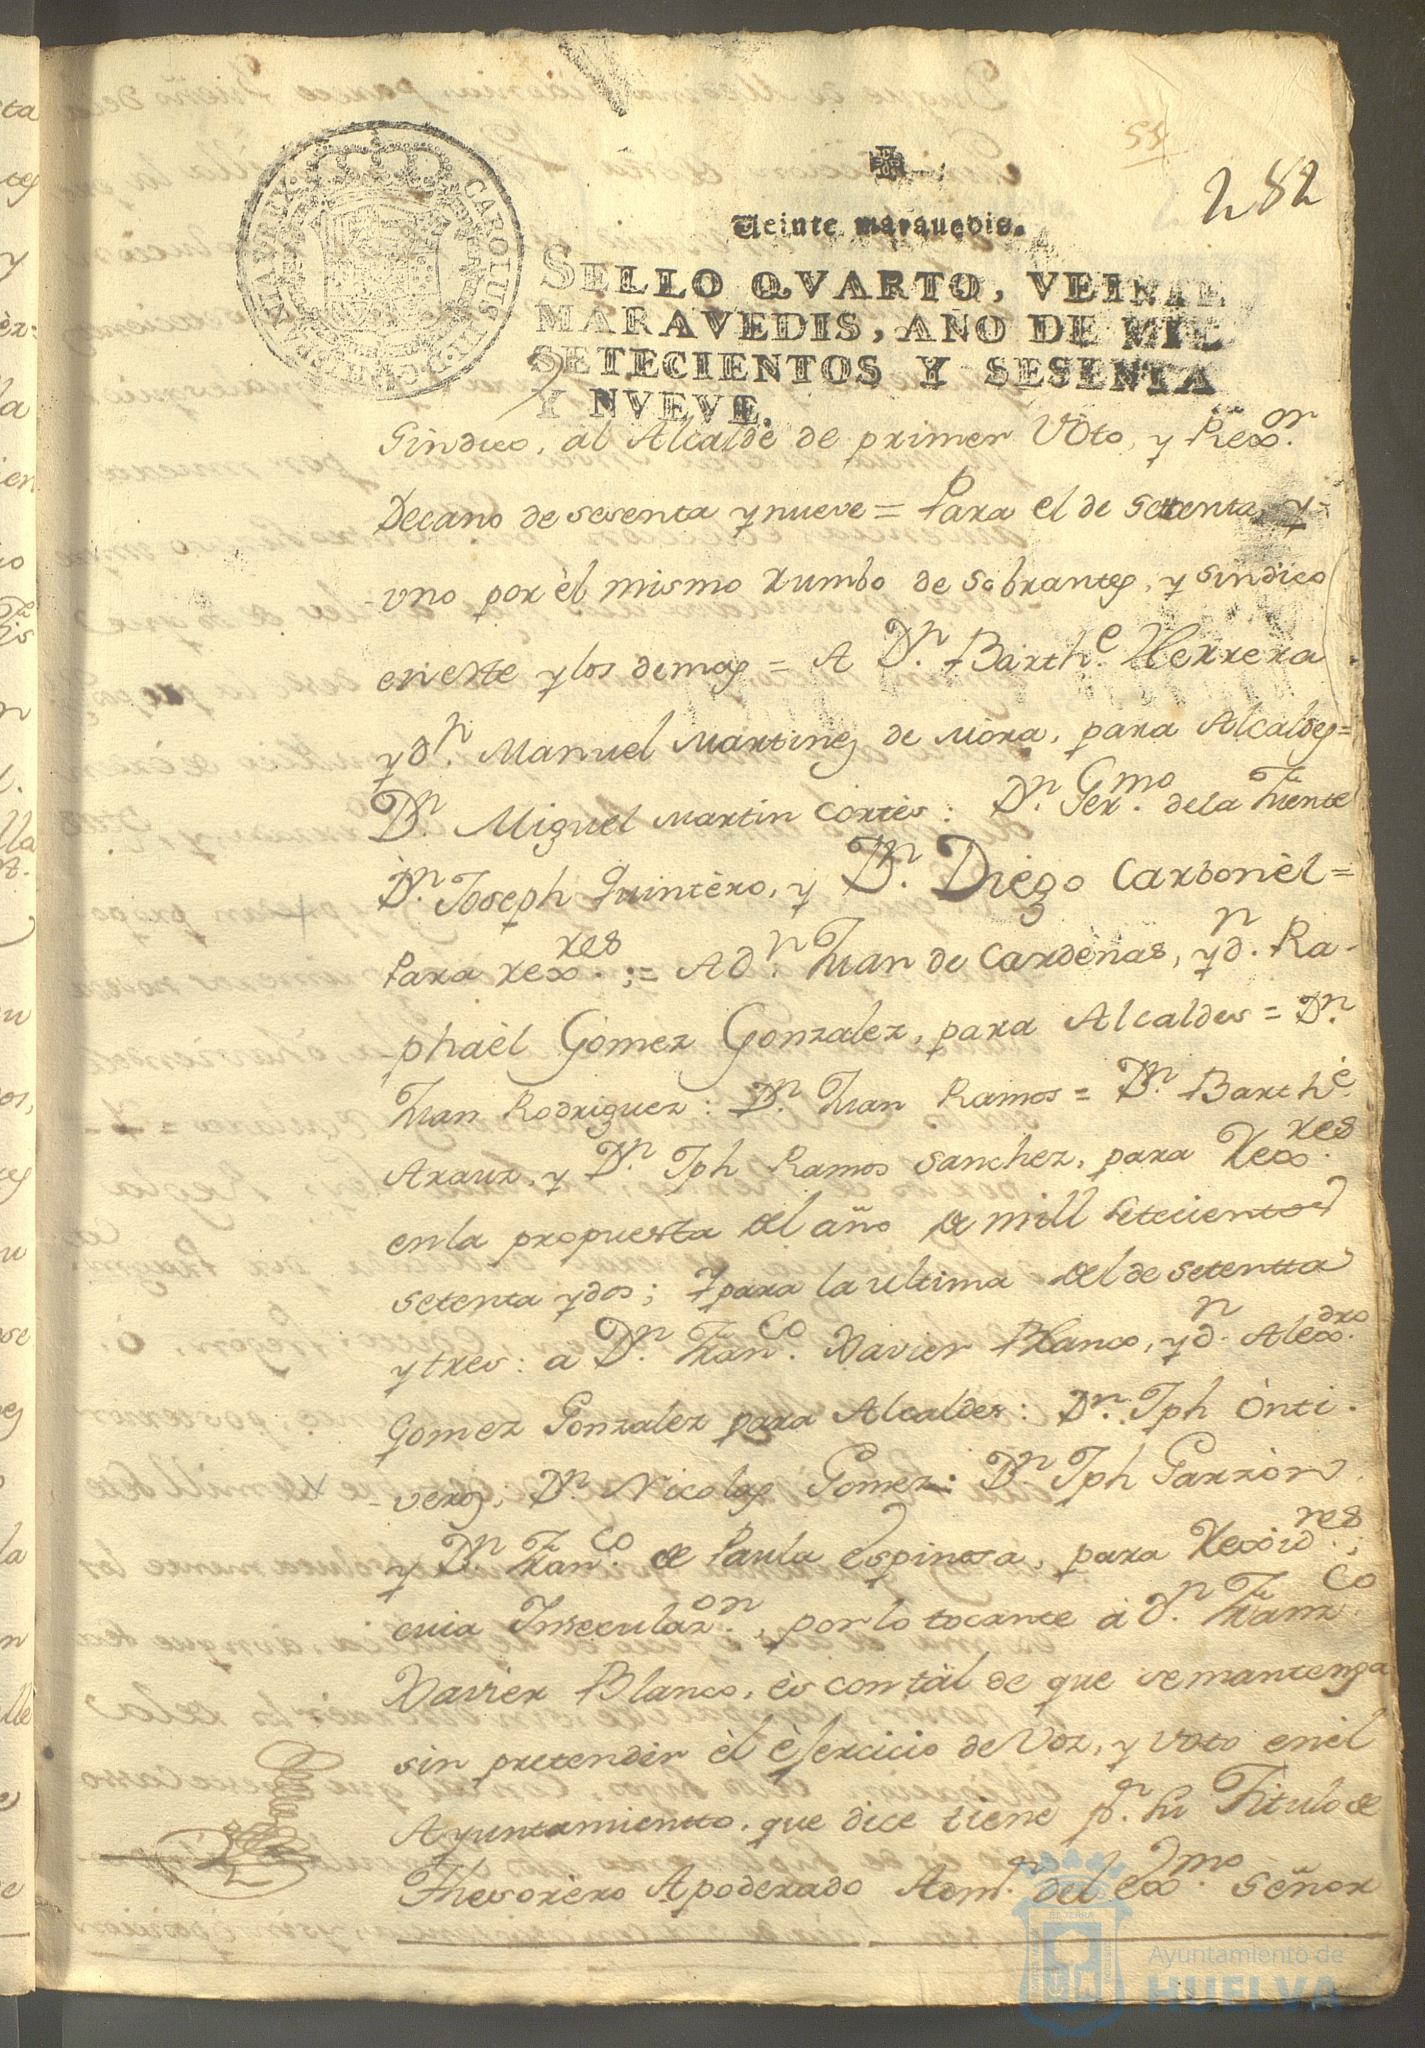 55
282
Veinte marauedis.
CAROLUS III D G HISPANIAR REX
SELLO QVARTO, VEINTE
MARAVEDIS, AÑO DE MIL
SETECIENTOS Y SESENTA
Y NVEVE.
Sindico, al Alcalde de primer Voto, y Rex.or
Decano de sesenta y nueve = Para el de setenta, y
uno por èl mismo rumbo de Sobrantes, y sindico
en este y los demas = A Dn. Barthe. Herrera
y dn. Manuel Martinez de Mora, para Alcaldes =
Dn. Miguel Martin Cortès: Dn. Germo. de la Fuente
Dn. Joseph Quintèro, y Dn. Diego Carbonèl =
Para rexres.; = A dn. Juan de Cardenas, y dn. Ra-
-phaèl Gomez Gonzalez, para Alcaldes = Dn.
Juan Rodriguez: Dn. Juan Ramos = Dn. Barthé.
Arauz, y Dn. Jph Ramos Sanchez, para Rexres.
en la propuesta del año de mill setecientos
setenta y dos; Y para la ultima del de setentta
y tres: a Dn. Franco. Xavier Blanco, y dn. Alexdro.
Gomez Gonzalez para Alcaldes: Dn. Jph Onti-
-veros; Dn. Nicolas Gomez: Dn. Jph Garzòn
y Dn. Franco. de Paula Espinosa, para Rexidres.;
cuia Insecularon., por lo tocante á dn. Franco.
Xavier Blanco, és con tàl de que se mantenga
sin pretender èl èjercicio de Voz, y voto en el
Ayuntamientto, que dice tiene pr. su Titulo de
Thesorèro Apoderado Admr. del Exmo. Señor
Ayuntamiento de
HUELVA